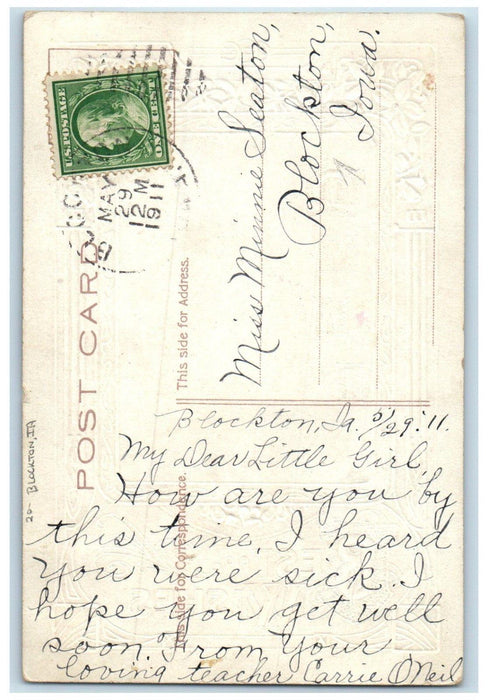 POST CARD
This side for Correspondence.
This side for Address.
U.S. POSTAGE
ONE CENT
MAY
29
12 M
1911
Miss Minnie Seaton,
Blockton,
Iowa.
Blockton, Ia. 5/29.'11.
My Dear Little Girl,
How are you by
this time. I heard
you were sick. I
hope you get well
soon. From your
loving teacher Carrie O'Neil
20- BLOCKTON, IA